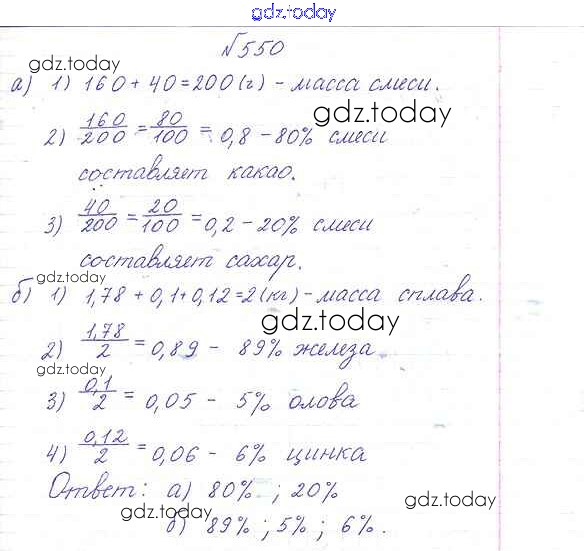 gdz.today
№550
gdz.today
а) 1) 160 + 40 = 200 (г) - масса смеси.
gdz.today
2) 160/200 = 80/100 = 0,8 - 80% смеси
составляет какао.
3) 40/200 = 20/100 = 0,2 - 20% смеси
составляет сахар.
gdz.today
б) 1) 1,78 + 0,1 + 0,12 = 2 (кг) - масса сплава.
gdz.today
2) 1,78/2 = 0,89 - 89% железа
gdz.today
3) 0,1/2 = 0,05 - 5% олова
4) 0,12/2 = 0,06 - 6% цинка
Ответ: а) 80% ; 20%
gdz.today
gdz.today
б) 89% ; 5% ; 6%.